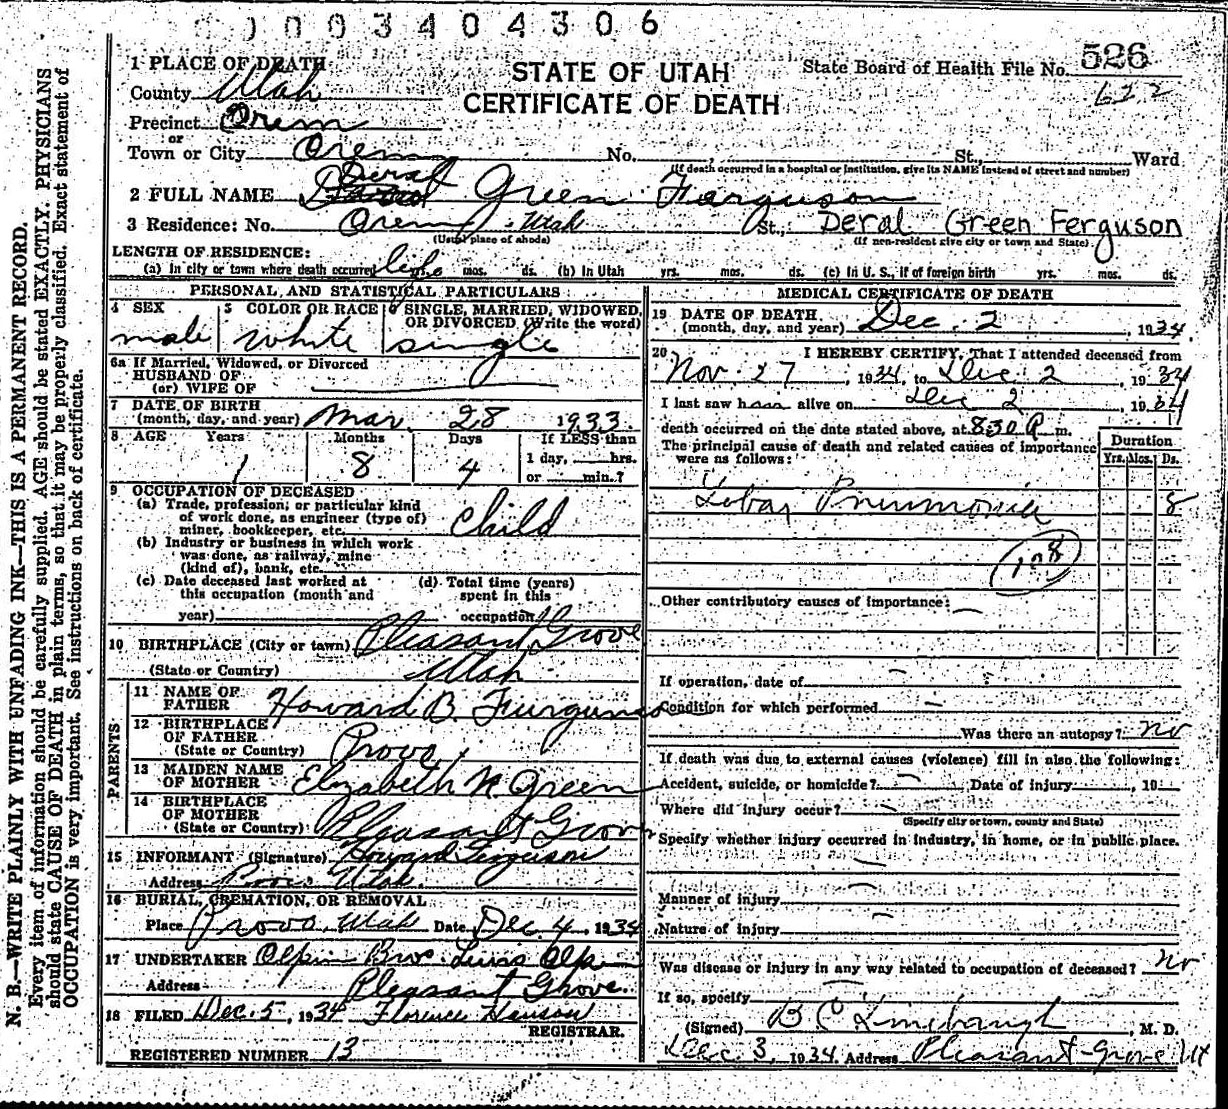 0003404306
526
622
STATE OF UTAH
CERTIFICATE OF DEATH
State Board of Health File No.
1 PLACE OF DEATH
County Utah
Precinct Orem
or
Town or City Orem No. St., Ward
(If death occurred in a hospital or institution, give its NAME instead of street and number)
Deral
2 FULL NAME Green Ferguson
3 Residence: No. Orem, Utah St., Deral Green Ferguson
(Usual place of abode) (If non-resident give city or town and State)
LENGTH OF RESIDENCE:
(a) In city or town where death occurred life mos. ds. (b) In Utah yrs. mos. ds. (c) In U. S., if of foreign birth yrs. mos. ds.
PERSONAL AND STATISTICAL PARTICULARS
4 SEX 5 COLOR OR RACE 6 SINGLE, MARRIED, WIDOWED,
OR DIVORCED (Write the word)
male white single
6a If Married, Widowed, or Divorced
HUSBAND OF
(or) WIFE OF
7 DATE OF BIRTH
(month, day, and year) Mar. 28 1933
8 AGE Years Months Days If LESS than
1 8 4 1 day, hrs.
or min.?
9 OCCUPATION OF DECEASED
(a) Trade, profession, or particular kind
of work done, as engineer (type of)
miner, bookkeeper, etc. Child
(b) Industry or business in which work
was done, as railway, mine
(kind of), bank, etc.
(c) Date deceased last worked at (d) Total time (years)
this occupation (month and spent in this
year) occupation
10 BIRTHPLACE (City or town) Pleasant Grove
(State or Country) Utah
PARENTS
11 NAME OF
FATHER Howard B. Furguson
12 BIRTHPLACE
OF FATHER
(State or Country) Provo,
13 MAIDEN NAME
OF MOTHER Elizabeth N Green
14 BIRTHPLACE
OF MOTHER
(State or Country) Pleasant Grove
15 INFORMANT (Signature) Howard Ferguson
Address Provo Utah.
16 BURIAL, CREMATION, OR REMOVAL
Place Provo, Utah Date Dec. 4, 1934
17 UNDERTAKER Olpin Bros. Lewis Olpin
Address Pleasant Grove.
18 FILED Dec. 5, 1934 Florence Hanson
REGISTRAR.
REGISTERED NUMBER 13
MEDICAL CERTIFICATE OF DEATH
19 DATE OF DEATH
(month, day, and year) Dec. 2, 1934
20 I HEREBY CERTIFY, That I attended deceased from
Nov. 27, 1934, to Dec. 2, 1934
I last saw him alive on Dec 2, 1934
death occurred on the date stated above, at 8:30 A m.
The principal cause of death and related causes of importance
were as follows:
Duration
Yrs. Mos. Ds.
Lobar Pneumonia 8
108
Other contributory causes of importance:
If operation, date of
Condition for which performed
Was there an autopsy? no
If death was due to external causes (violence) fill in also the following:
Accident, suicide, or homicide? Date of injury, 19
Where did injury occur?
(Specify city or town, county and State)
Specify whether injury occurred in industry, in home, or in public place.
Manner of injury
Nature of injury
Was disease or injury in any way related to occupation of deceased? no
If so, specify
(Signed) B C Linebaugh, M. D.
Dec. 3, 1934. Address Pleasant Grove Ut
N. B.—WRITE PLAINLY WITH UNFADING INK—THIS IS A PERMANENT RECORD.
Every item of information should be carefully supplied. AGE should be stated EXACTLY. PHYSICIANS
should state CAUSE OF DEATH in plain terms, so that it may be properly classified. Exact statement of
OCCUPATION is very important. See instructions on back of certificate.